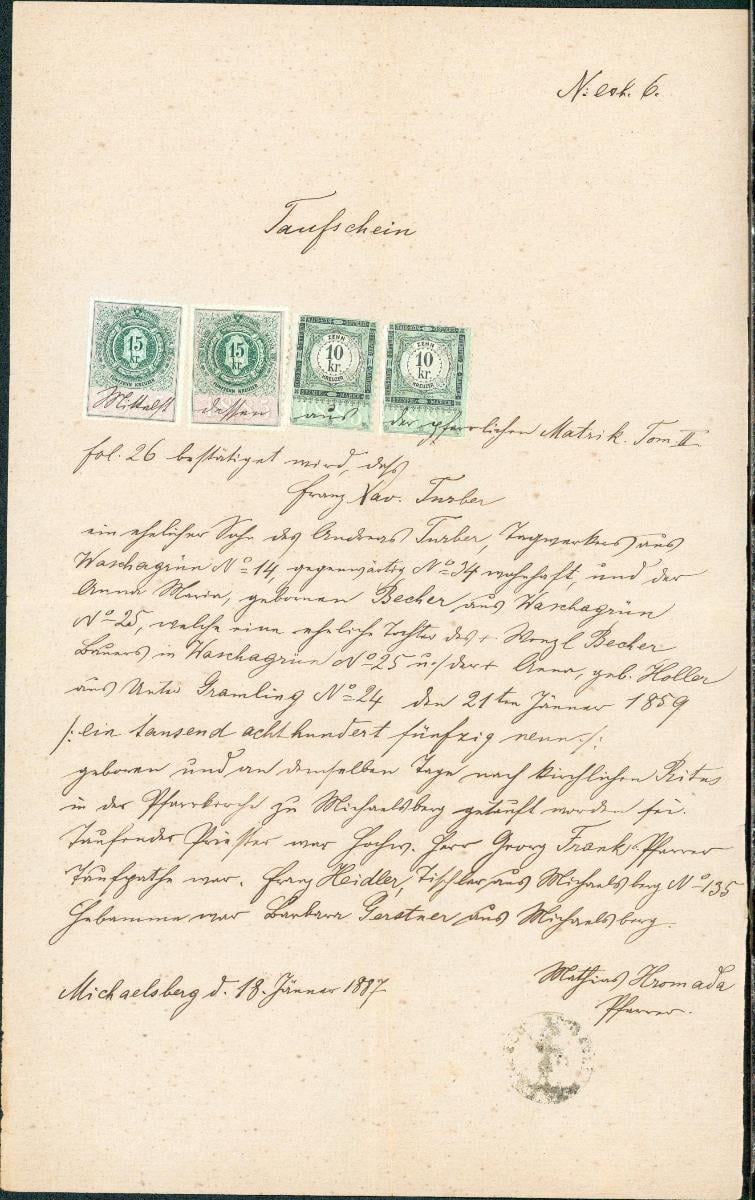 N: exh. 6.
Taufschein
15 kr. FÜNFZEHN KREUZER
15 kr. FÜNFZEHN KREUZER
ZEHN 10 kr. KREUZER STEMPEL MARKE
ZEHN 10 kr. KREUZER STEMPEL MARKE
Mittelst dessen aus der pfarrlichen Matrik. Tom II
fol. 26 bestätiget wird, daß
Franz Xav. Turber
ein ehelicher Sohn des Andreas Turber, Tagwerkers aus
Waschagrün No 14, gegenwärtig No 34 wohnhaft, und der
Anna Maria, gebornen Becher aus Waschagrün
No 25, welche eine eheliche Tochter des + Wenzl Becher
Bauers in Waschagrün No 25 u. der + Anna, geb. Holler
aus Unter Gramling No 24 den 21ten Jänner 1859
/: ein tausend achthundert fünfzig neun :/:
geboren und an demselben Tage nach kirchlichen Ritus
in der Pfarrkirche zu Michaelsberg getauft worden sei.
Taufender Priester war Hochw. Herr Georg Frank, Pfarrer
Taufpathe war. Franz Heidler, Tischler aus Michaelsberg No 135
Hebamme war Barbara Gerstner aus Michaelsberg.
Michaelsberg d. 18. Jänner 1887
Mathias Hromada
Pfarrer.